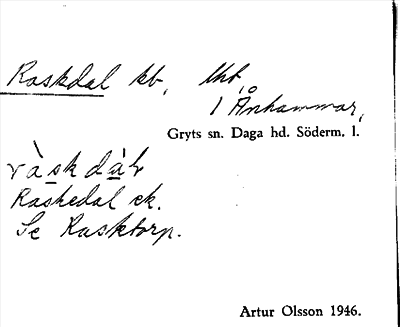 Raskdal kb, tht
1 Ånhammar,
Gryts sn. Daga hd. Söderm. l.
ràskdàl
Raskedal ek.
Se Rasktorp.
Artur Olsson 1946.